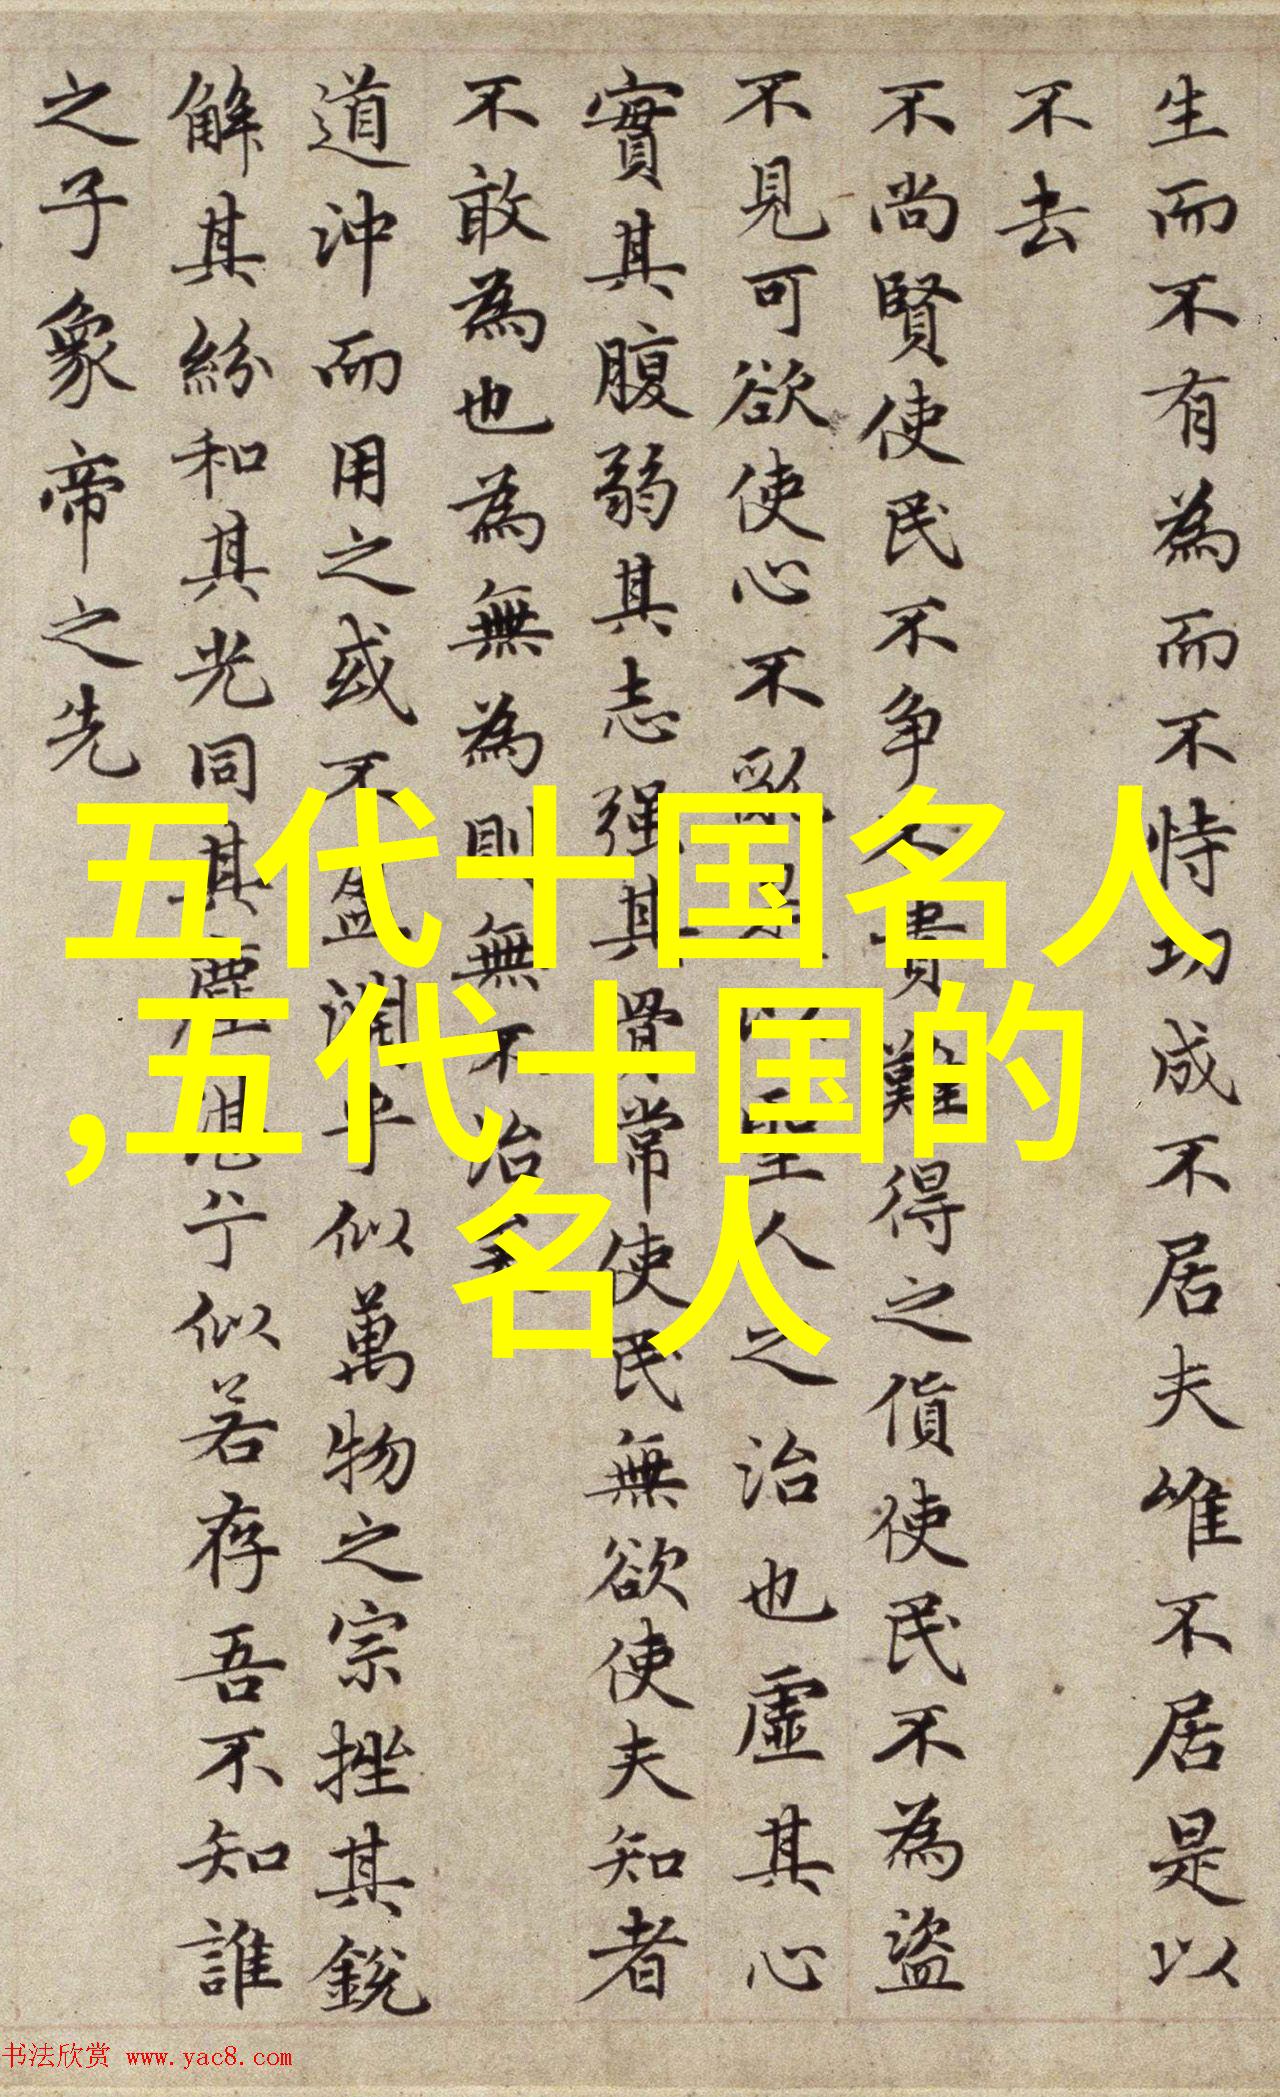 生而不有為而不恃功成不居夫唯不居是以
不去
不尚賢使民不争不貴難得之貨使民不為盜
不見可欲使心不亂是以聖人之治也虛其心
實其腹弱其志强其骨常使民無欲使夫知者
不敢為也為無為則無不治矣
道沖而用之或不盈淵乎似萬物之宗挫其銳
解其紛和其光同其塵湛兮似若存吾不知誰
之子象帝之先
五代十国名人
,五代十国的
名人
书法欣赏 www.yac8.com